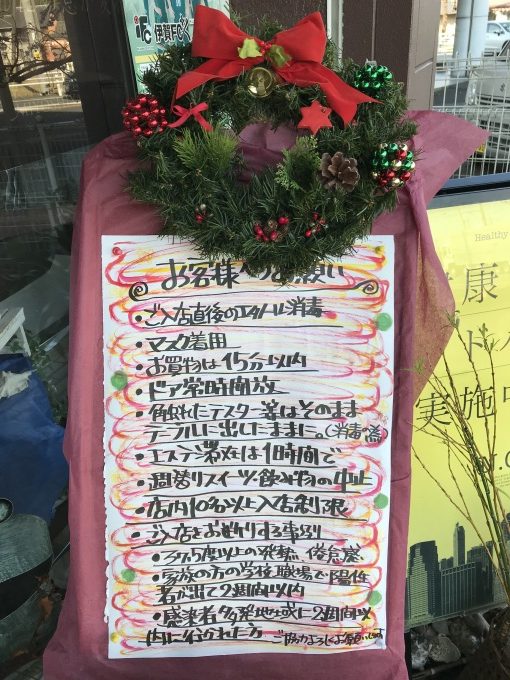 伊賀FC
お客様へのお願い
・ご入店直後のエタノール消毒
・マスク着用
・お買物は15分以内
・ドア常時開放
・触れたテスター等はそのまま
テーブルに出したままに。(消毒の為)
・エステ滞在は1時間で
・週替りスイーツ・飲み物の中止
・店内10名以上入店制限
・ご入店をお断りする事例
・37.5度以上の発熱 倦怠感
・家族の方の学校、職場で陽性
者が出て2週間以内
・感染者多発地域に2週間以
内に行かれた方
ご協力よろしくお願いします
Healthy
康
実施中